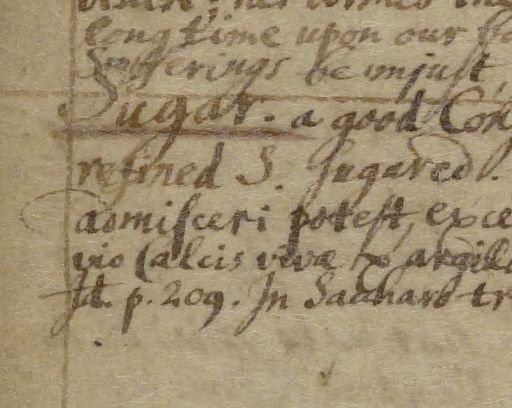 long time upon our
Sufferings be unjust,
Sugar. a good
refined S. Sugared.
admisceri potest, exce
vio Calcis vivæ & argill
Id. p. 209. In Saccharo tr